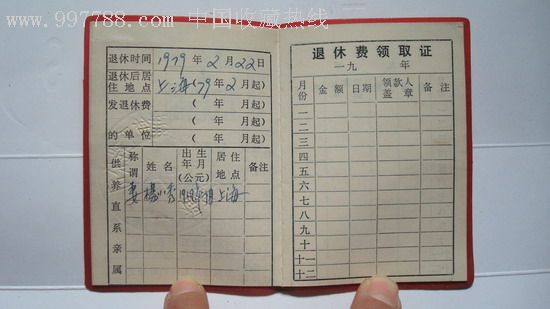 www.997788.com 中国收藏热线
退休时间 1979年2月22日
退休后居住地点 上海(79年2月起)
发退休费的单位 (年 月起)
(年 月起)
(年 月起)
供养直系亲属
称谓 姓名 出生年月(公元) 居住地点 备注
妻 上海
退休费领取证
一九 年
月份 金额 日期 领款人盖章 备注
一
二
三
四
五
六
七
八
九
十
十一
十二